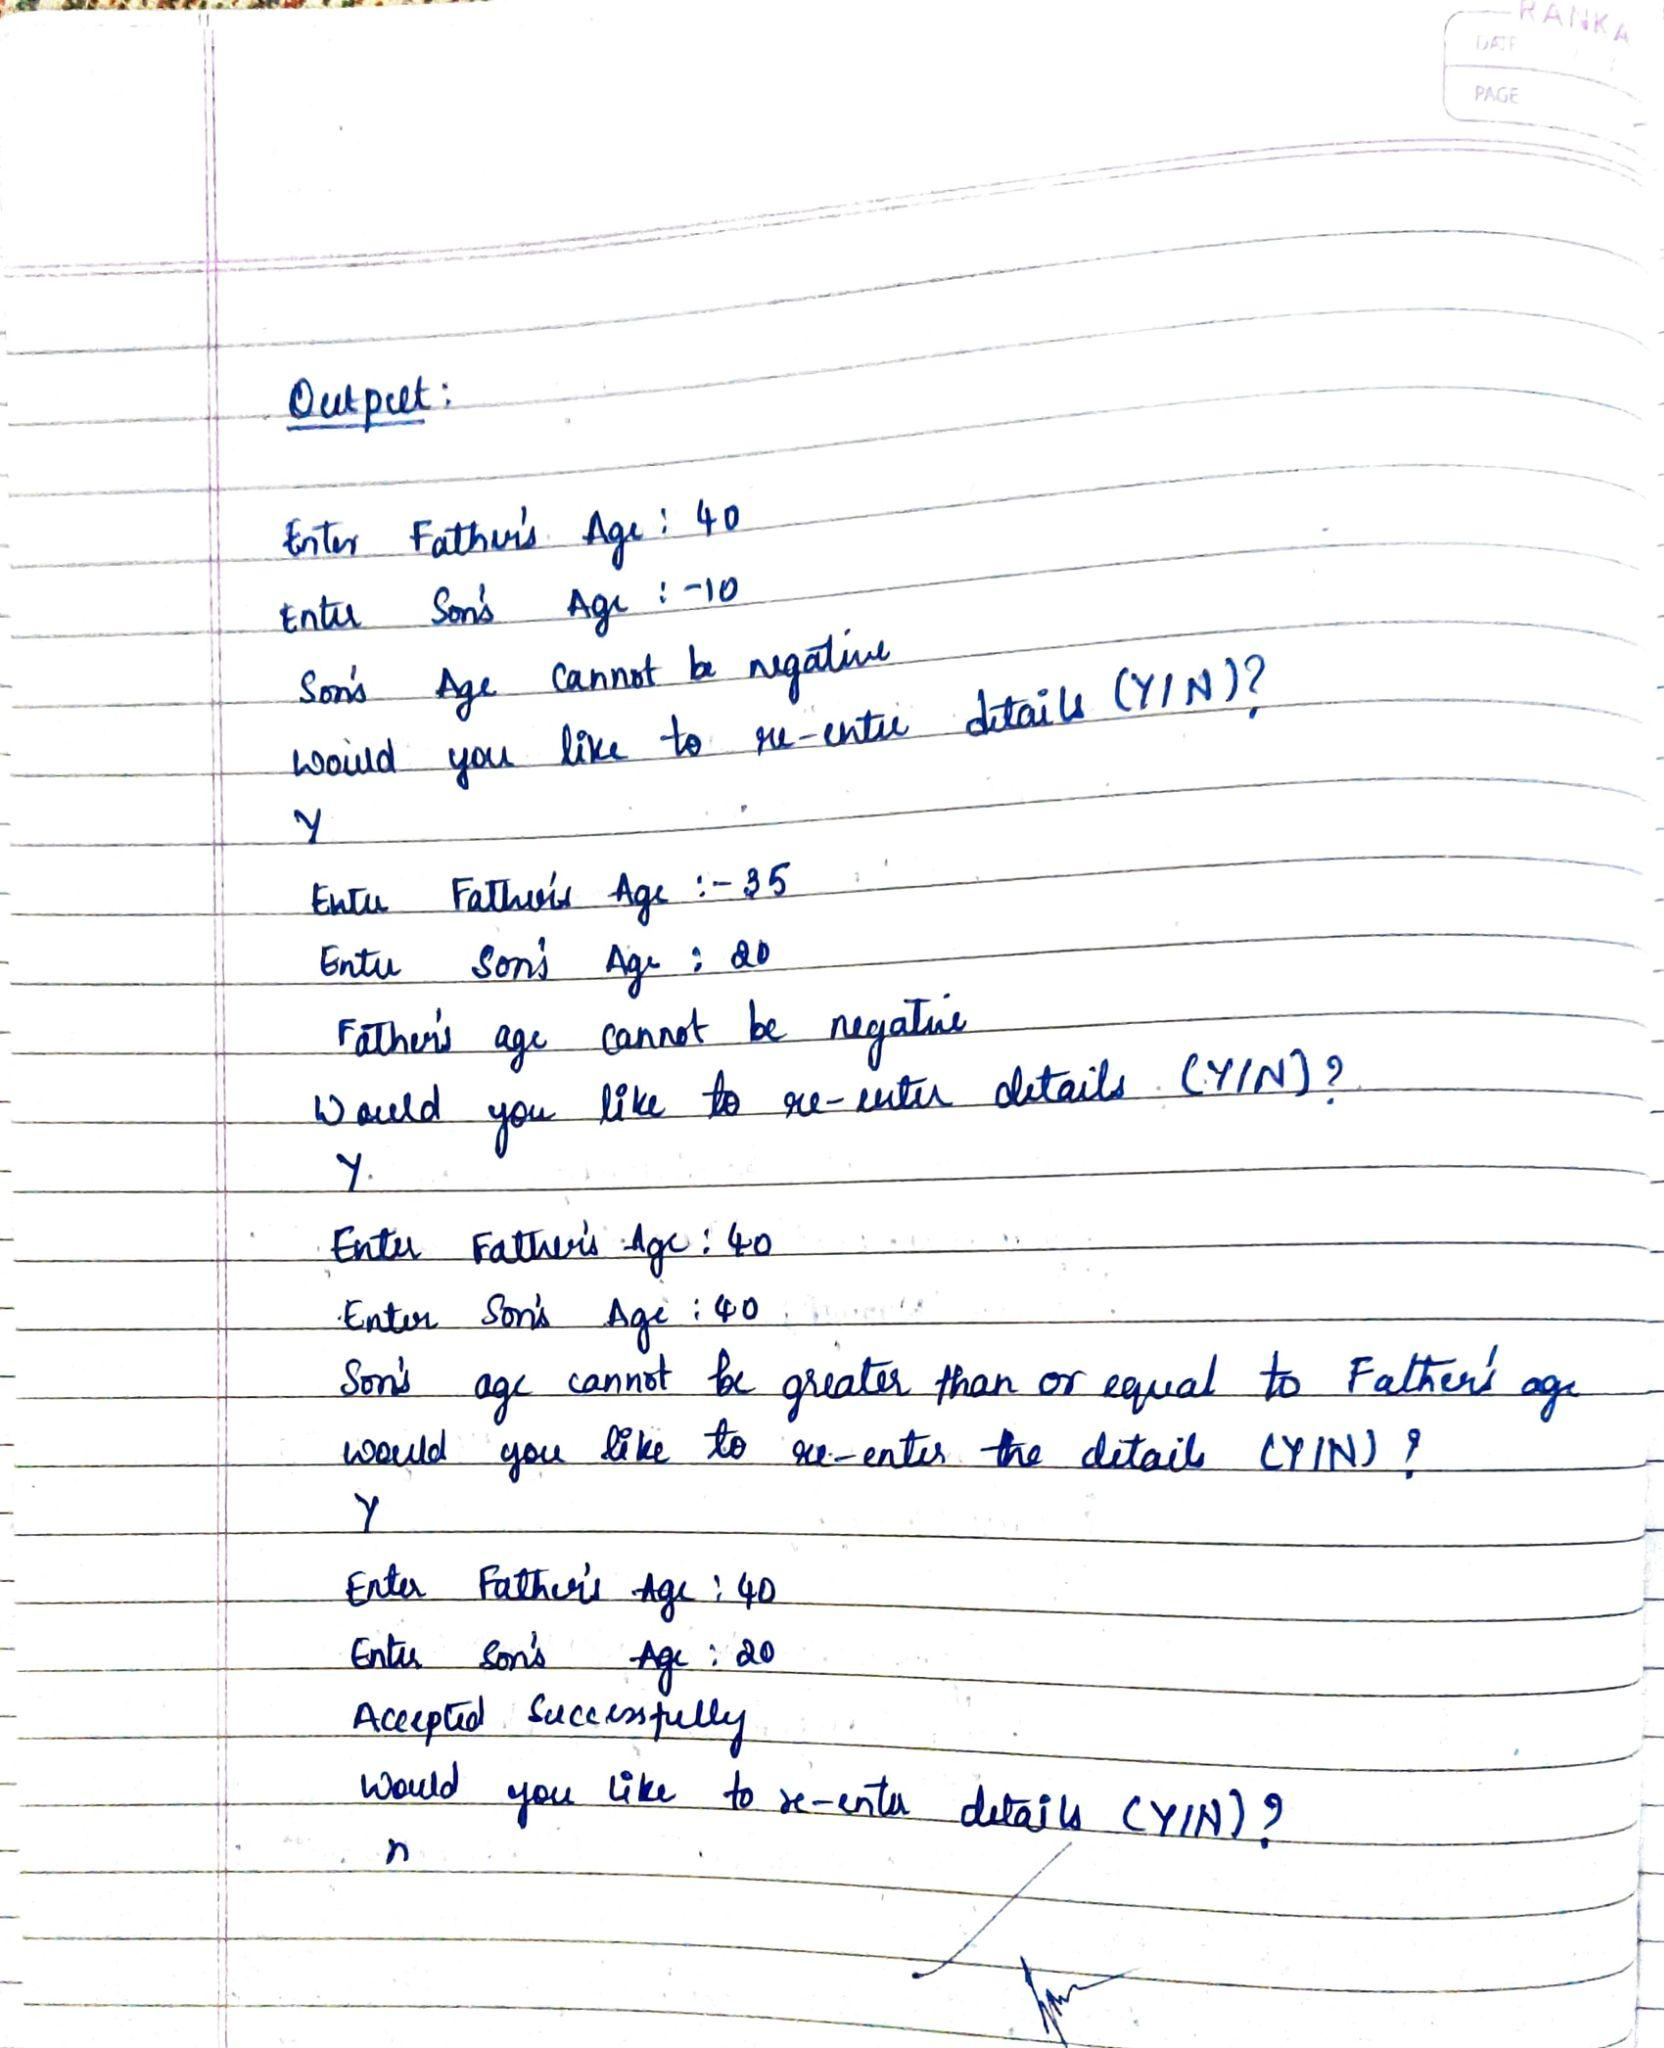 RANKA
DATE
PAGE
Output:
Enter Father's Age: 40
Enter Son's Age: -10
Son's Age cannot be negative
Would you like to re-enter details (Y/N)?
Y
Enter Father's Age :-35
Enter Son's Age: 20
Father's age cannot be negative
Would you like to re-enter details (Y/N)?
Y.
Enter Father's Age: 40
Enter Son's Age: 40
Son's age cannot be greater than or equal to Father's age
would you like to re-enter the details (Y/N)?
Y
Enter Father's Age: 40
Enter Son's Age: 20
Accepted Successfully
Would you like to re-enter details (Y/N)?
n